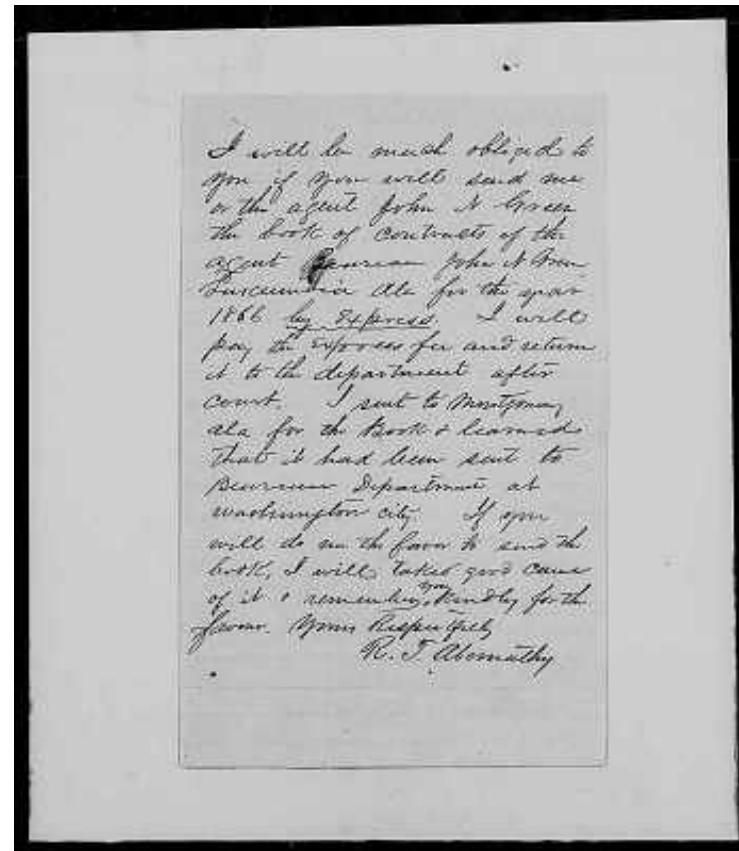 I will be much obliged to
you if you will send me
or the agent John N Green
the book of contracts of the
agent Beaureau John N Green
Tuscumbia Ala for the year
1866 by Express. I will
pay the express fee and return
it to the department after
court. I sent to Montgomery
Ala for the Book & learned
that it had been sent to
Beaureau Department at
washington city. If you
will do me the favor to send the
book, I will take good care
of it & remember you kindly for the
favour. Yours Respectfully
R. T. Abernathy